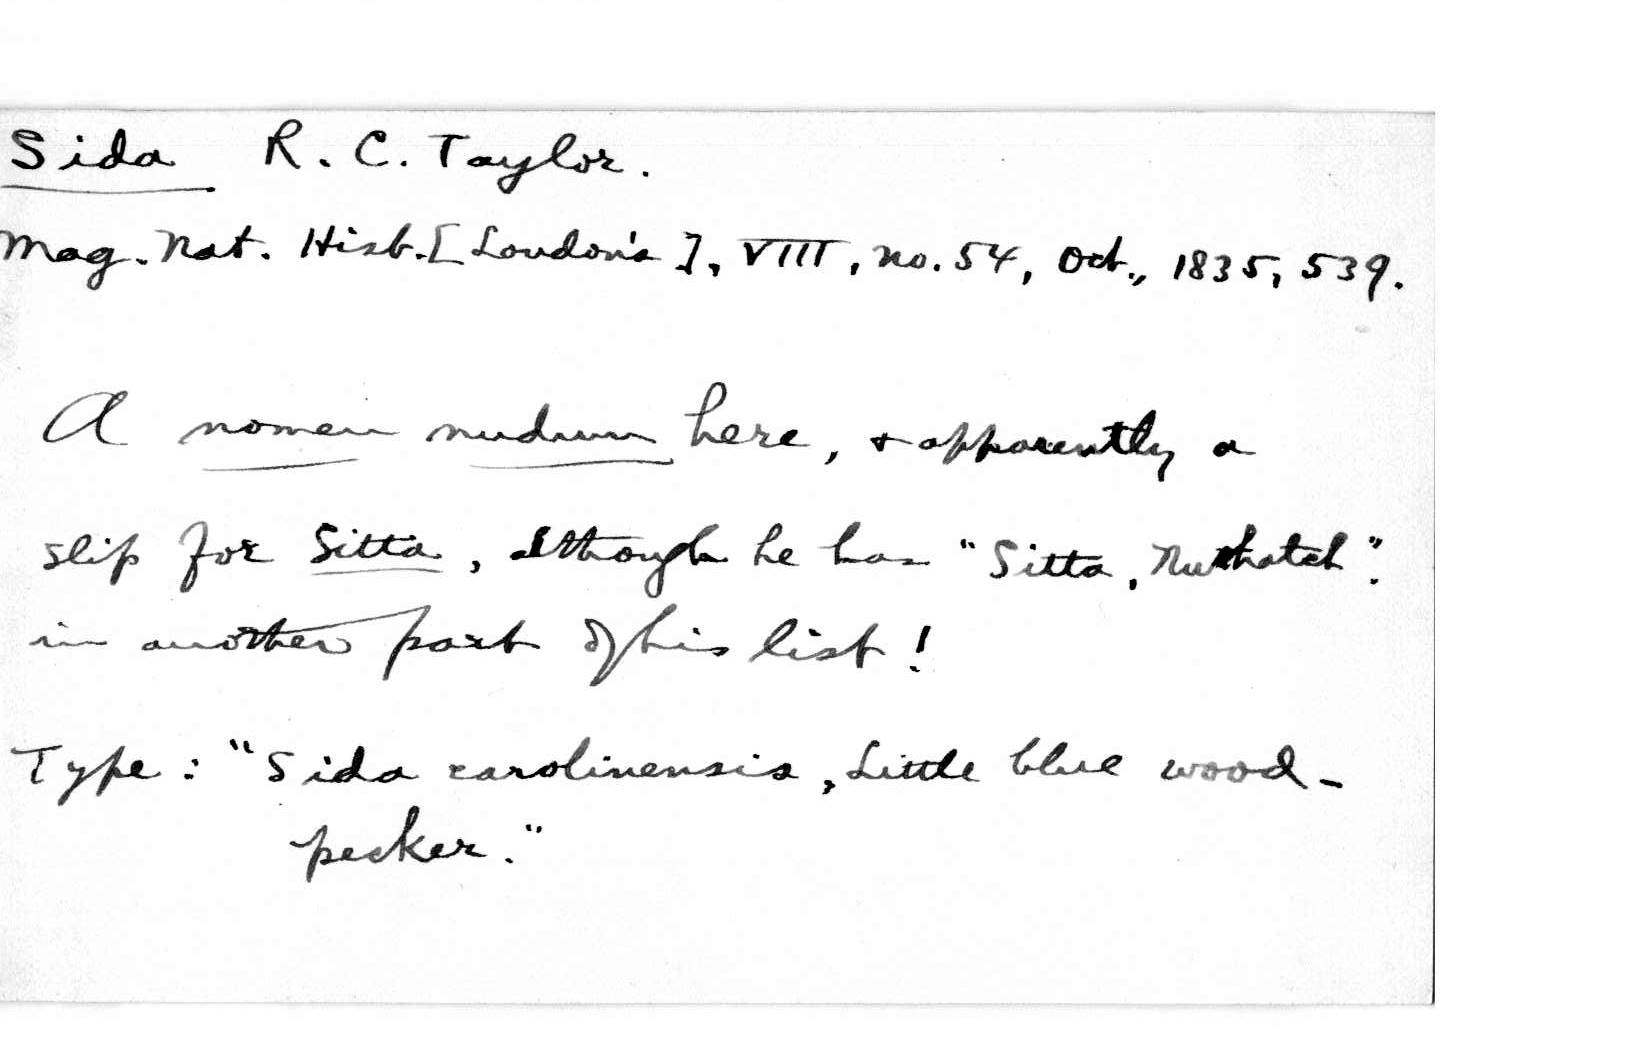 Sida R. C. Taylor.
Mag. Nat. Hist. [Loudon's], VIII, no. 54, Oct., 1835, 539.
A nomen nudum here, & apparently a
slip for Sitta, although he has "Sitta, Nuthatch".
in another part of his list!
Type: "Sida carolinensis, Little blue wood-
pecker."